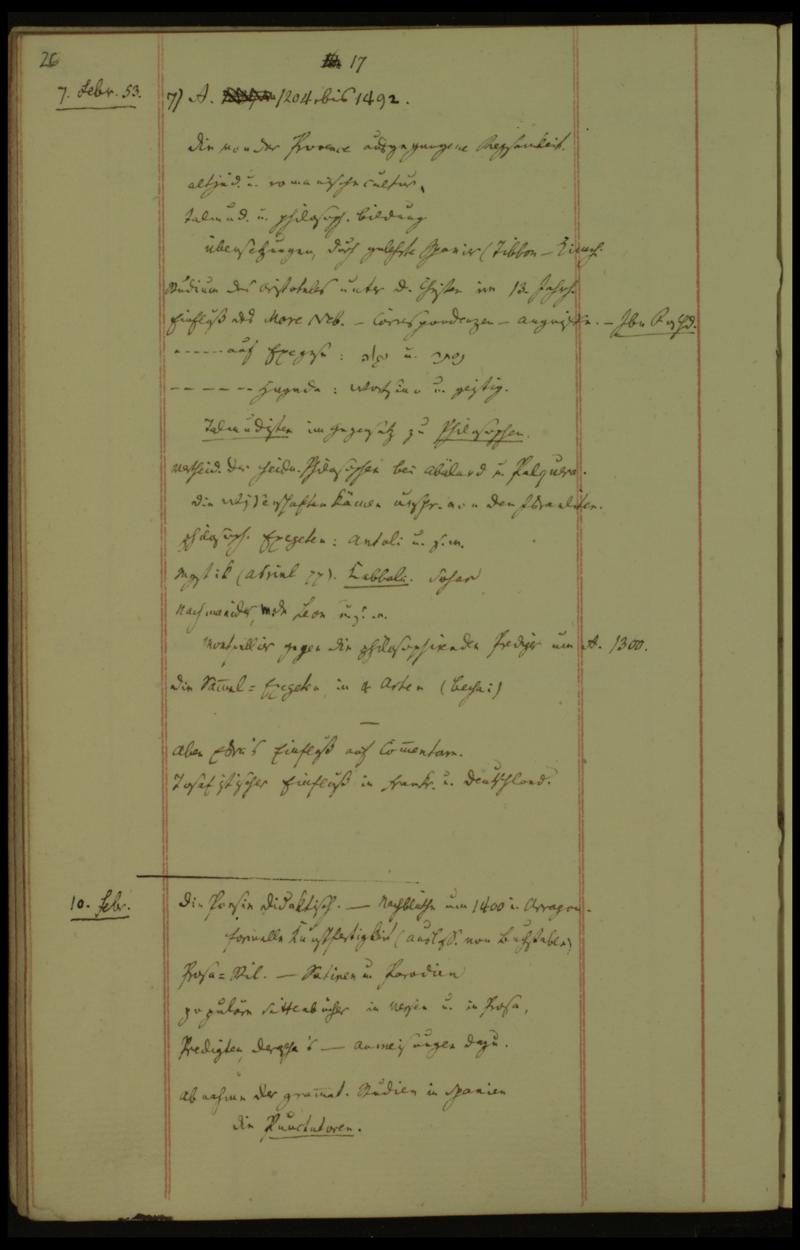 26
17
7. Febr. 53.
7) A. 1204 bis 1492.
die von der Provence ausgegangene Regsamkeit.
altjüd. u. romanische Cultur,
talmud. u. philosoph. Bildung
Übersetzungen, durch gelehrte Spanier (Tibbon – Kimchi.
Studium des Aristoteles unter d. Christen im 13. Jahrh.
Einfluß des More Neb. – Correspondenzen – – Ibn Roschd.
– – – – auf Exegese : u. נסתר
– – – – – Hagada : Wortsinn u. geistig.
Talmudisten im Gegensatz zu Philosophen.
vertheid. der heidn. Philosophen bei Abälard u. Palquera.
die Wissenschaften kämen urspr. von den Israeliten.
philosoph. Exegeten : Antoli u. s. w.
Mystik (Asriel ). Kabbala. Sohar
Nachmanides, Leon u. s. w.
Montpellier gegen die philosophirenden Prediger um A. 1300.
die Samml-Exegeten in 4 Arten (Bechai)
—
Aben Esra's Einfluß auf Commentare.
Tosafistischer Einfluß in Frankr. u. Deutschland.
10. Febr.
die Poesie didaktisch. — Nachblüthe um 1400 in Arragon.
formelle Kunstfertigkeit (Auslass. von Buchstaben)
Prosa-Stil. — Satiren u. Parodien
populäre Sittenbücher in Versen u. in Prosa,
Predigten, Derascha's — Anweisungen dazu.
Abnahme der grammat. Studien in Spanien
die Punctatoren.